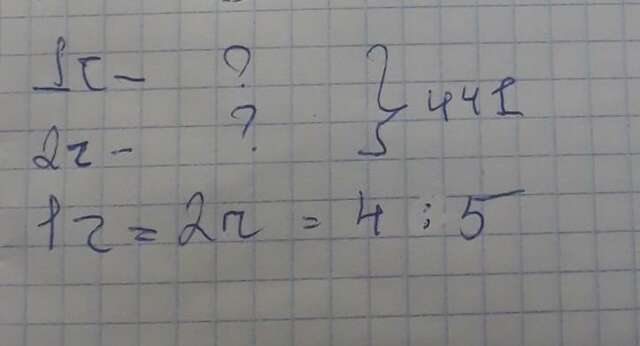 1г - ? } 441
2г - ?
1г = 2г = 4 : 5